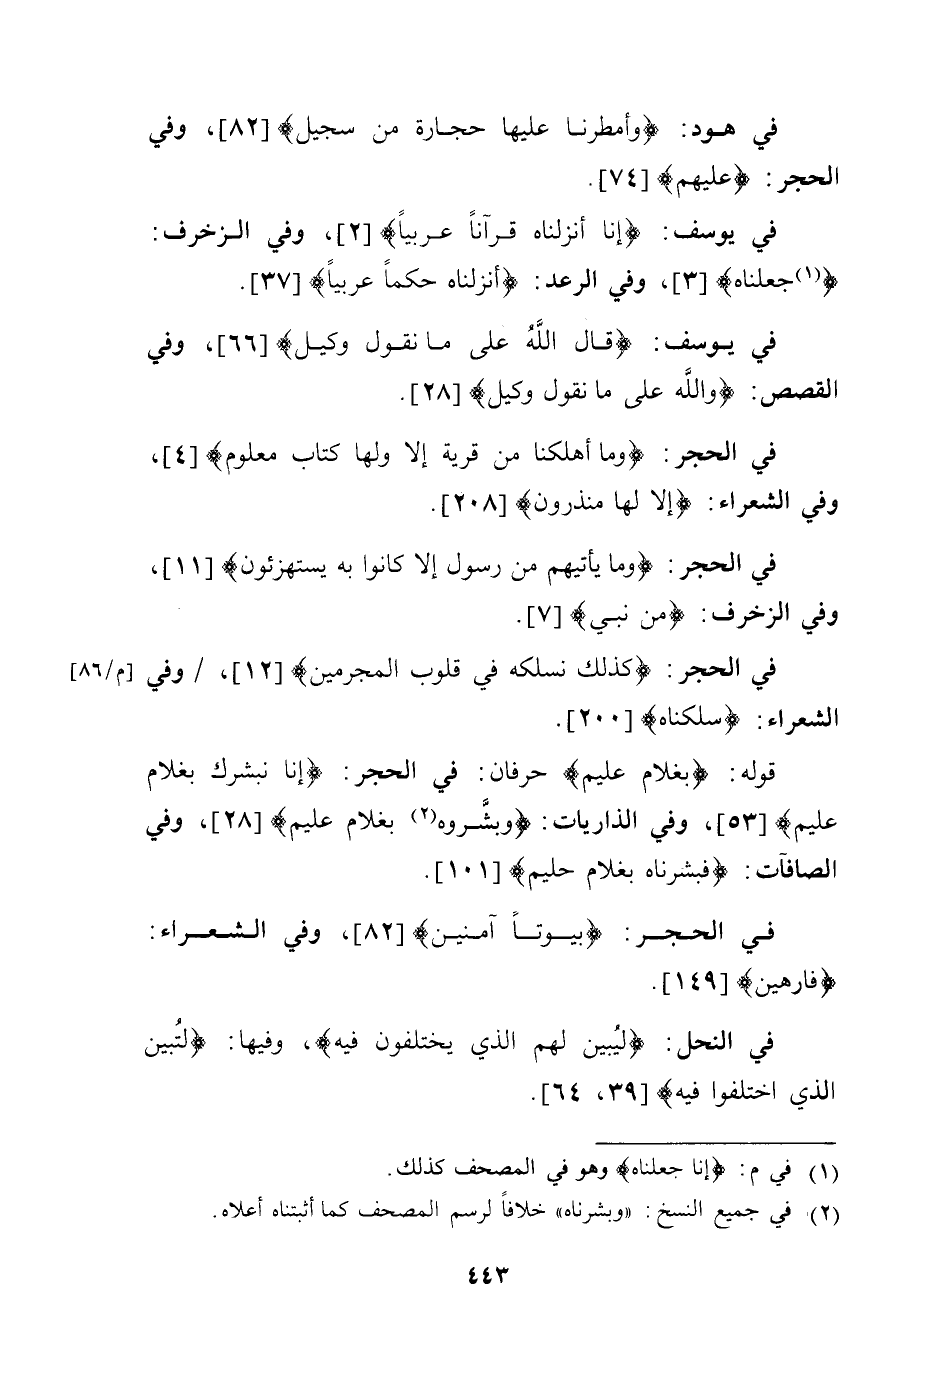 في هـود: ﴿وأمطرنـا عليها حجـارة من سجيل﴾ [٨٢]، وفي
الحجر: ﴿عليهم﴾ [٧٤].
في يوسف: ﴿إنا أنزلناه قـرآناً عـربياً﴾ [٢]، وفي الـزخرف:
﴿(١)جعلناه﴾ [٣]، وفي الرعد: ﴿أنزلناه حكماً عربياً﴾ [٣٧].
في يـوسف: ﴿قـال اللَّهُ على مـا نقـول وكيـل﴾ [٦٦]، وفي
القصص: ﴿واللَّه على ما نقول وكيل﴾ [٢٨].
في الحجر: ﴿وما أهلكنا من قرية إلا ولها كتاب معلوم﴾ [٤]،
وفي الشعراء: ﴿إلا لها منذرون﴾ [٢٠٨].
في الحجر: ﴿وما يأتيهم من رسول إلا كانوا به يستهزئون﴾ [١١]،
وفي الزخرف: ﴿من نبـي﴾ [٧].
في الحجر: ﴿كذلك نسلكه في قلوب المجرمين﴾ [١٢]، / وفي [م/٨٦]
الشعراء: ﴿سلكناه﴾ [٢٠٠].
قوله: ﴿بغلام عليم﴾ حرفان: في الحجر: ﴿إنا نبشرك بغلام
عليم﴾ [٥٣]، وفي الذاريات: ﴿وبشَّـروه(٢) بغلام عليم﴾ [٢٨]، وفي
الصافآت: ﴿فبشرناه بغلام حليم﴾ [١٠١].
فـي الحـجـر: ﴿بيـوتـاً آمـنيـن﴾ [٨٢]، وفي الـشـعـراء:
﴿فارهين﴾ [١٤٩].
في النحل: ﴿ليُبين لهم الذي يختلفون فيه﴾، وفيها: ﴿لتُبين
الذي اختلفوا فيه﴾ [٣٩، ٦٤].
(١) في م: ﴿إنا جعلناه﴾ وهو في المصحف كذلك.
(٢) في جميع النسخ: «وبشرناه» خلافاً لرسم المصحف كما أثبتناه أعلاه.
٤٤٣